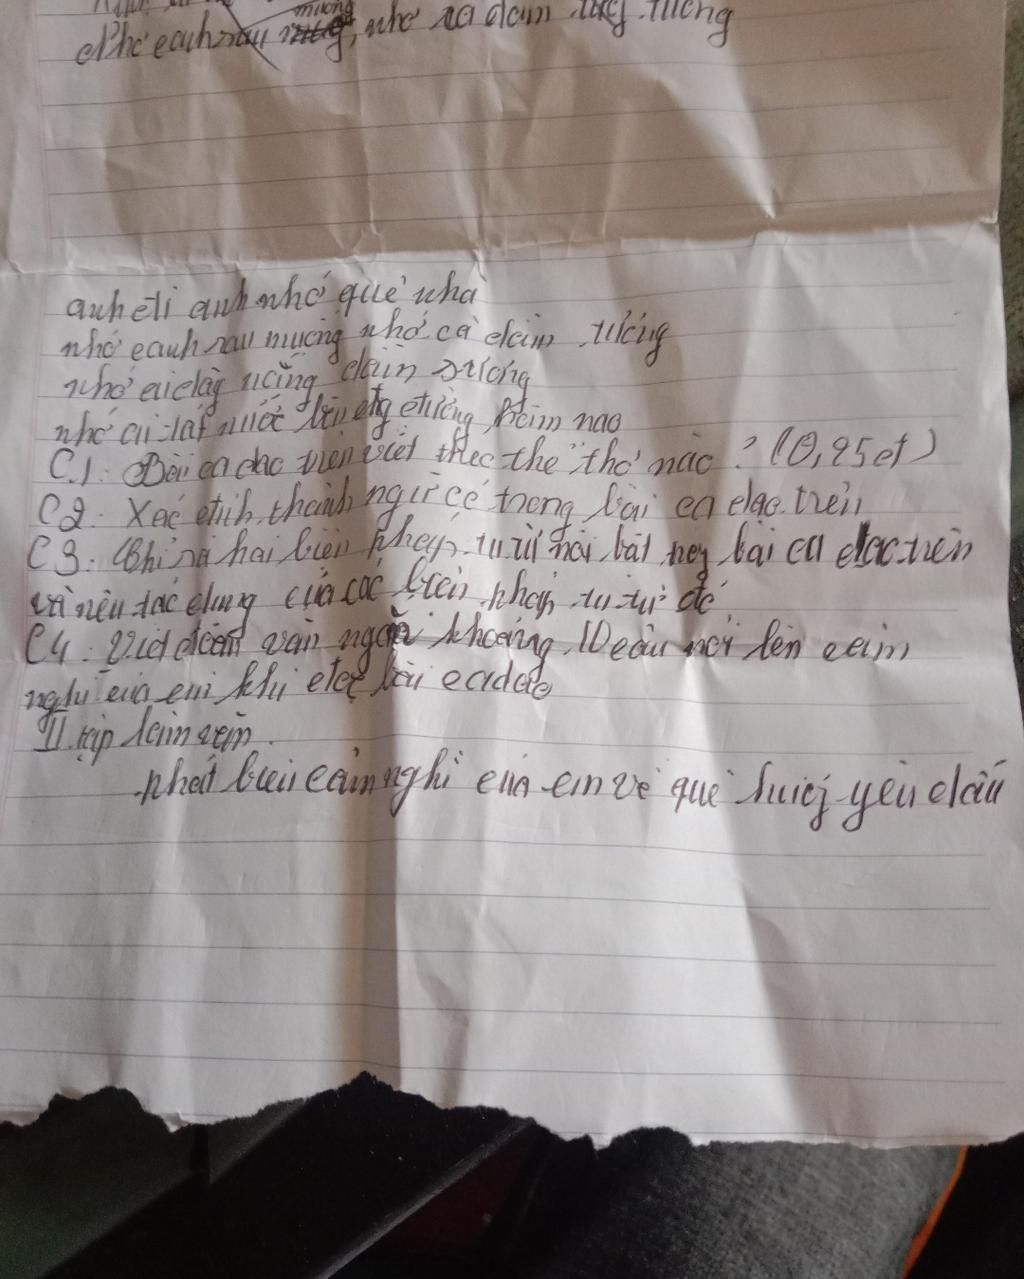 nhớ canh rau muống, nhớ cà dầm tương
anh đi anh nhớ quê nhà
nhớ canh rau muống nhớ cà dầm tương
nhớ ai dãi nắng dầm sương
nhớ ai tát nước bên đg đường hôm nao
C1: Bài ca dao trên viết theo thể thơ nào? (0,25đ)
C2: Xác định thành ngữ có trong bài ca dao trên
C3: Chỉ ra hai biện pháp tu từ nổi bật bài ca dao trên
và nêu tác dụng của các biện pháp tu từ đó
C4: Viết đoạn văn ngắn khoảng 10 câu nói lên cảm
nghĩ của em khi đọc bài ca dao
II. tập làm văn.
phát biểu cảm nghĩ của em về quê hươg yêu dấu